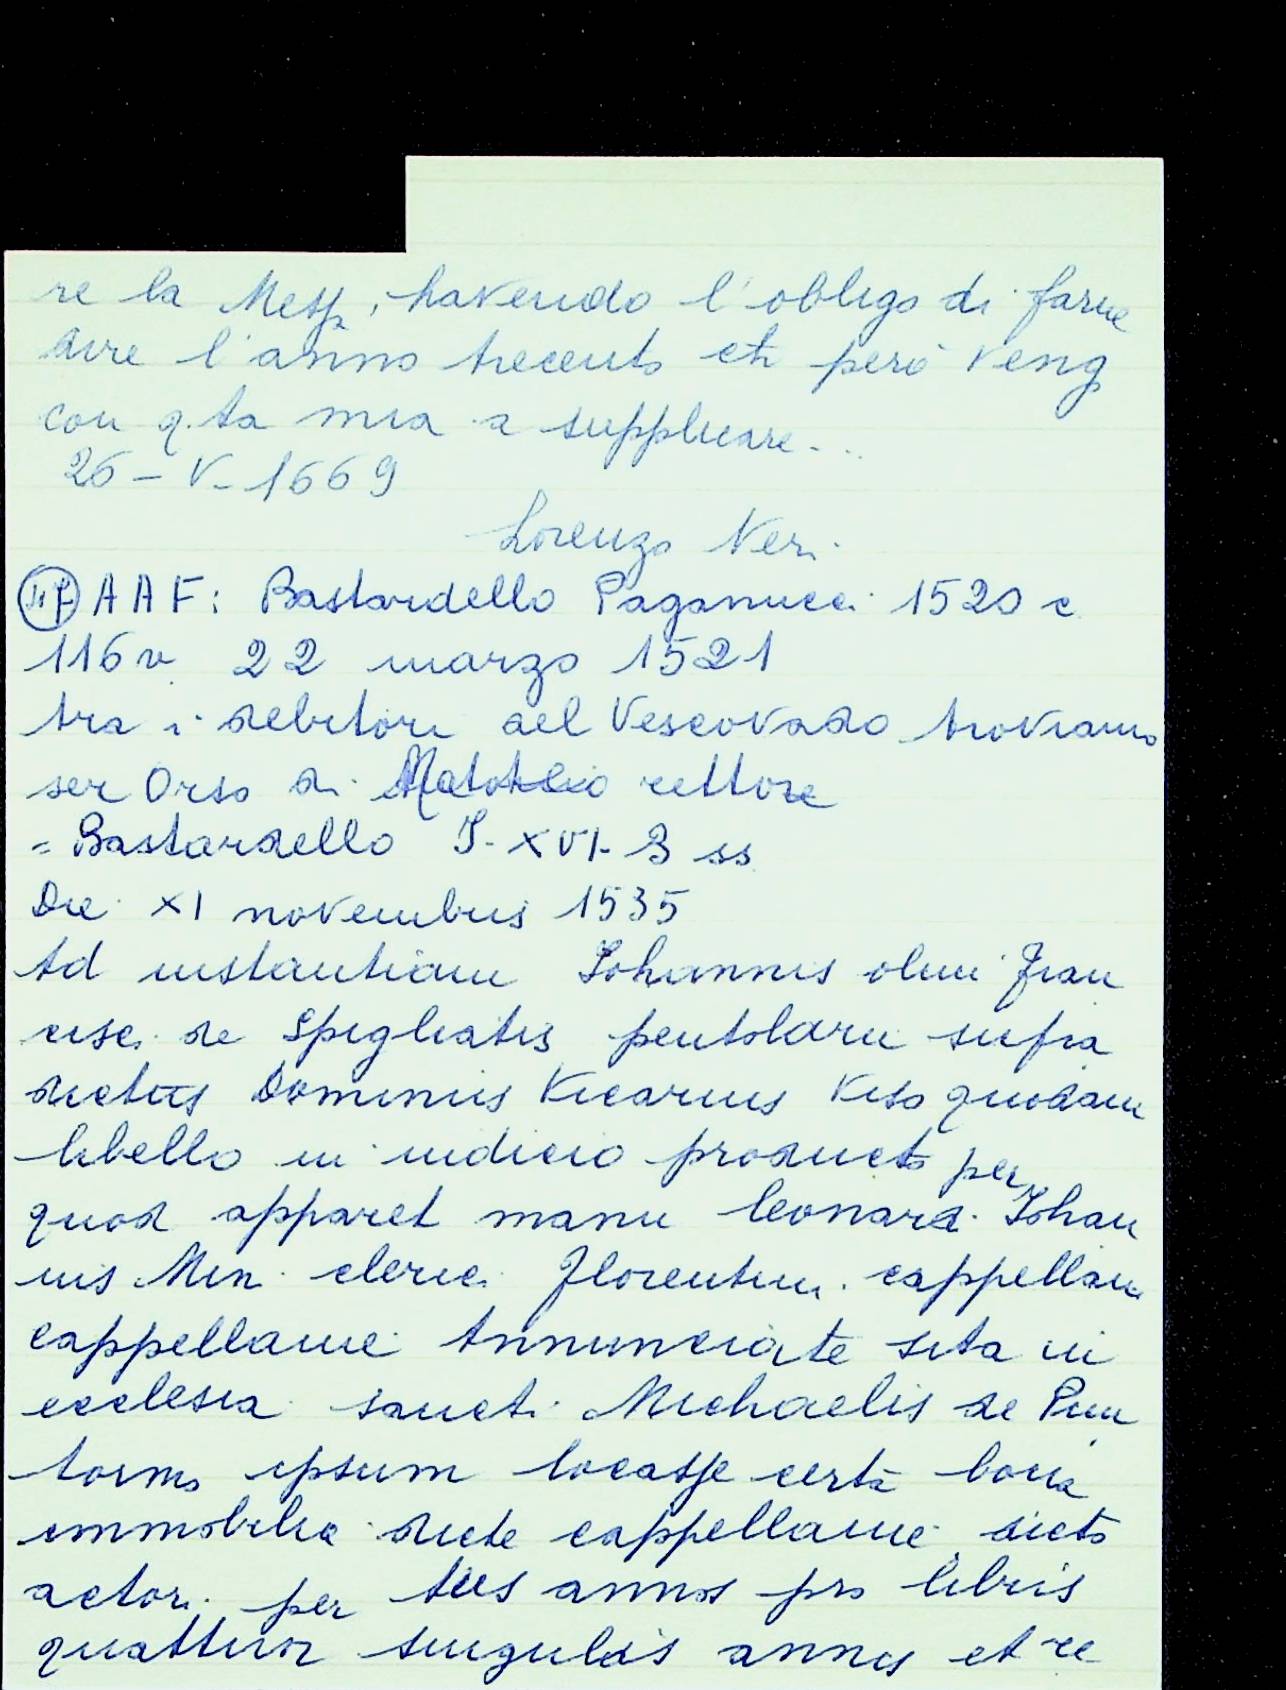 re la Messa, havendo l'obligo di farne
dire l'anno trecento et però vengo
con q.ta mia a supplicare...
26 - V - 1669
Lorenzo Neri
AAF: Bastardello Paganucci 1520 c
116v 22 marzo 1521
tra i debitori del Vescovado troviamo
ser Orso di rettore
= Bastardello I-XVI-3 ss
Die XI novembris 1535
Ad instantiam Iohannis olim Fran
cisci de Spigliatis pentolarii supra
dictus Dominus Vicarius viso quodam
libello in iudicio producto per
quod apparet manu leonardi Iohan
nis Min clerici Florentini cappellani
cappellanie Annunciate sita in
ecclesia sancti Michaelis de Pun
tormo ipsum locasse certa bona
immobilia dicte cappellanie dicto
actori per tres annos pro libris
quattuor singulis annis et re